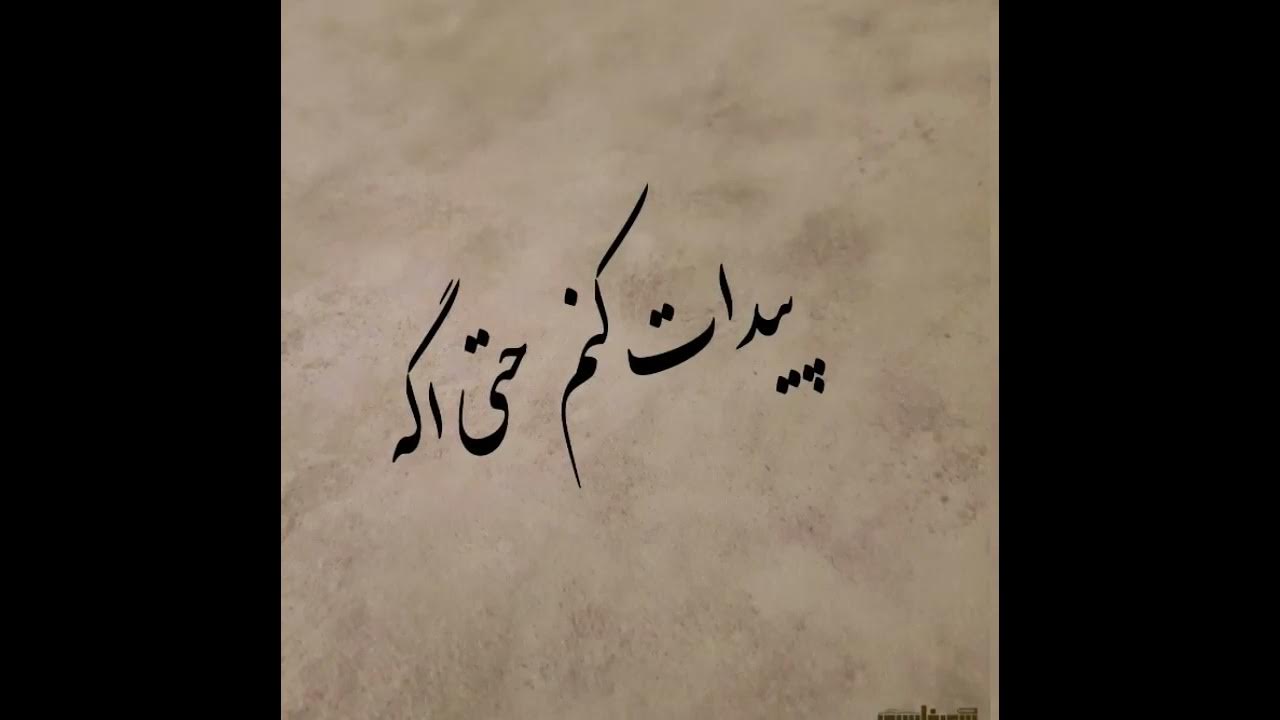 پیدات کنم حتی اگه